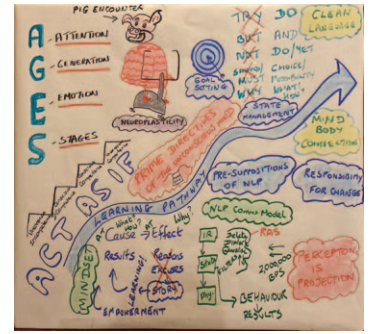 PIG ENCOUNTER
AGES
ATTENTION
GENERATION
EMOTION
STAGES
NEUROPLASTICITY
GOAL SETTING
TRY DO
BUT AND
NOT DO/YET
SHOULD/ CHOICE/
MUST POSSIBILITY
WHY WHAT/
HOW
CLEAN LANGUAGE
STATE MANAGEMENT
MIND BODY CONNECTION
PRIME DIRECTIVES
OF THE UNCONSCIOUS MIND
ACT AS IF
LEARNING PATHWAY
PRE-SUPPOSITIONS
OF NLP
RESPONSIBILITY
FOR CHANGE
NLP COMMS MODEL
MINDSET
WHAT?
HOW?
Why?
Cause
Effect
RESULTS
REASONS
EXCUSES
STORY
LEARNING!
EMPOWERMENT
I/R
State
RAS
2,000,000
BPS
BEHAVIOUR
RESULTS
PERCEPTION
IS
PROJECTION